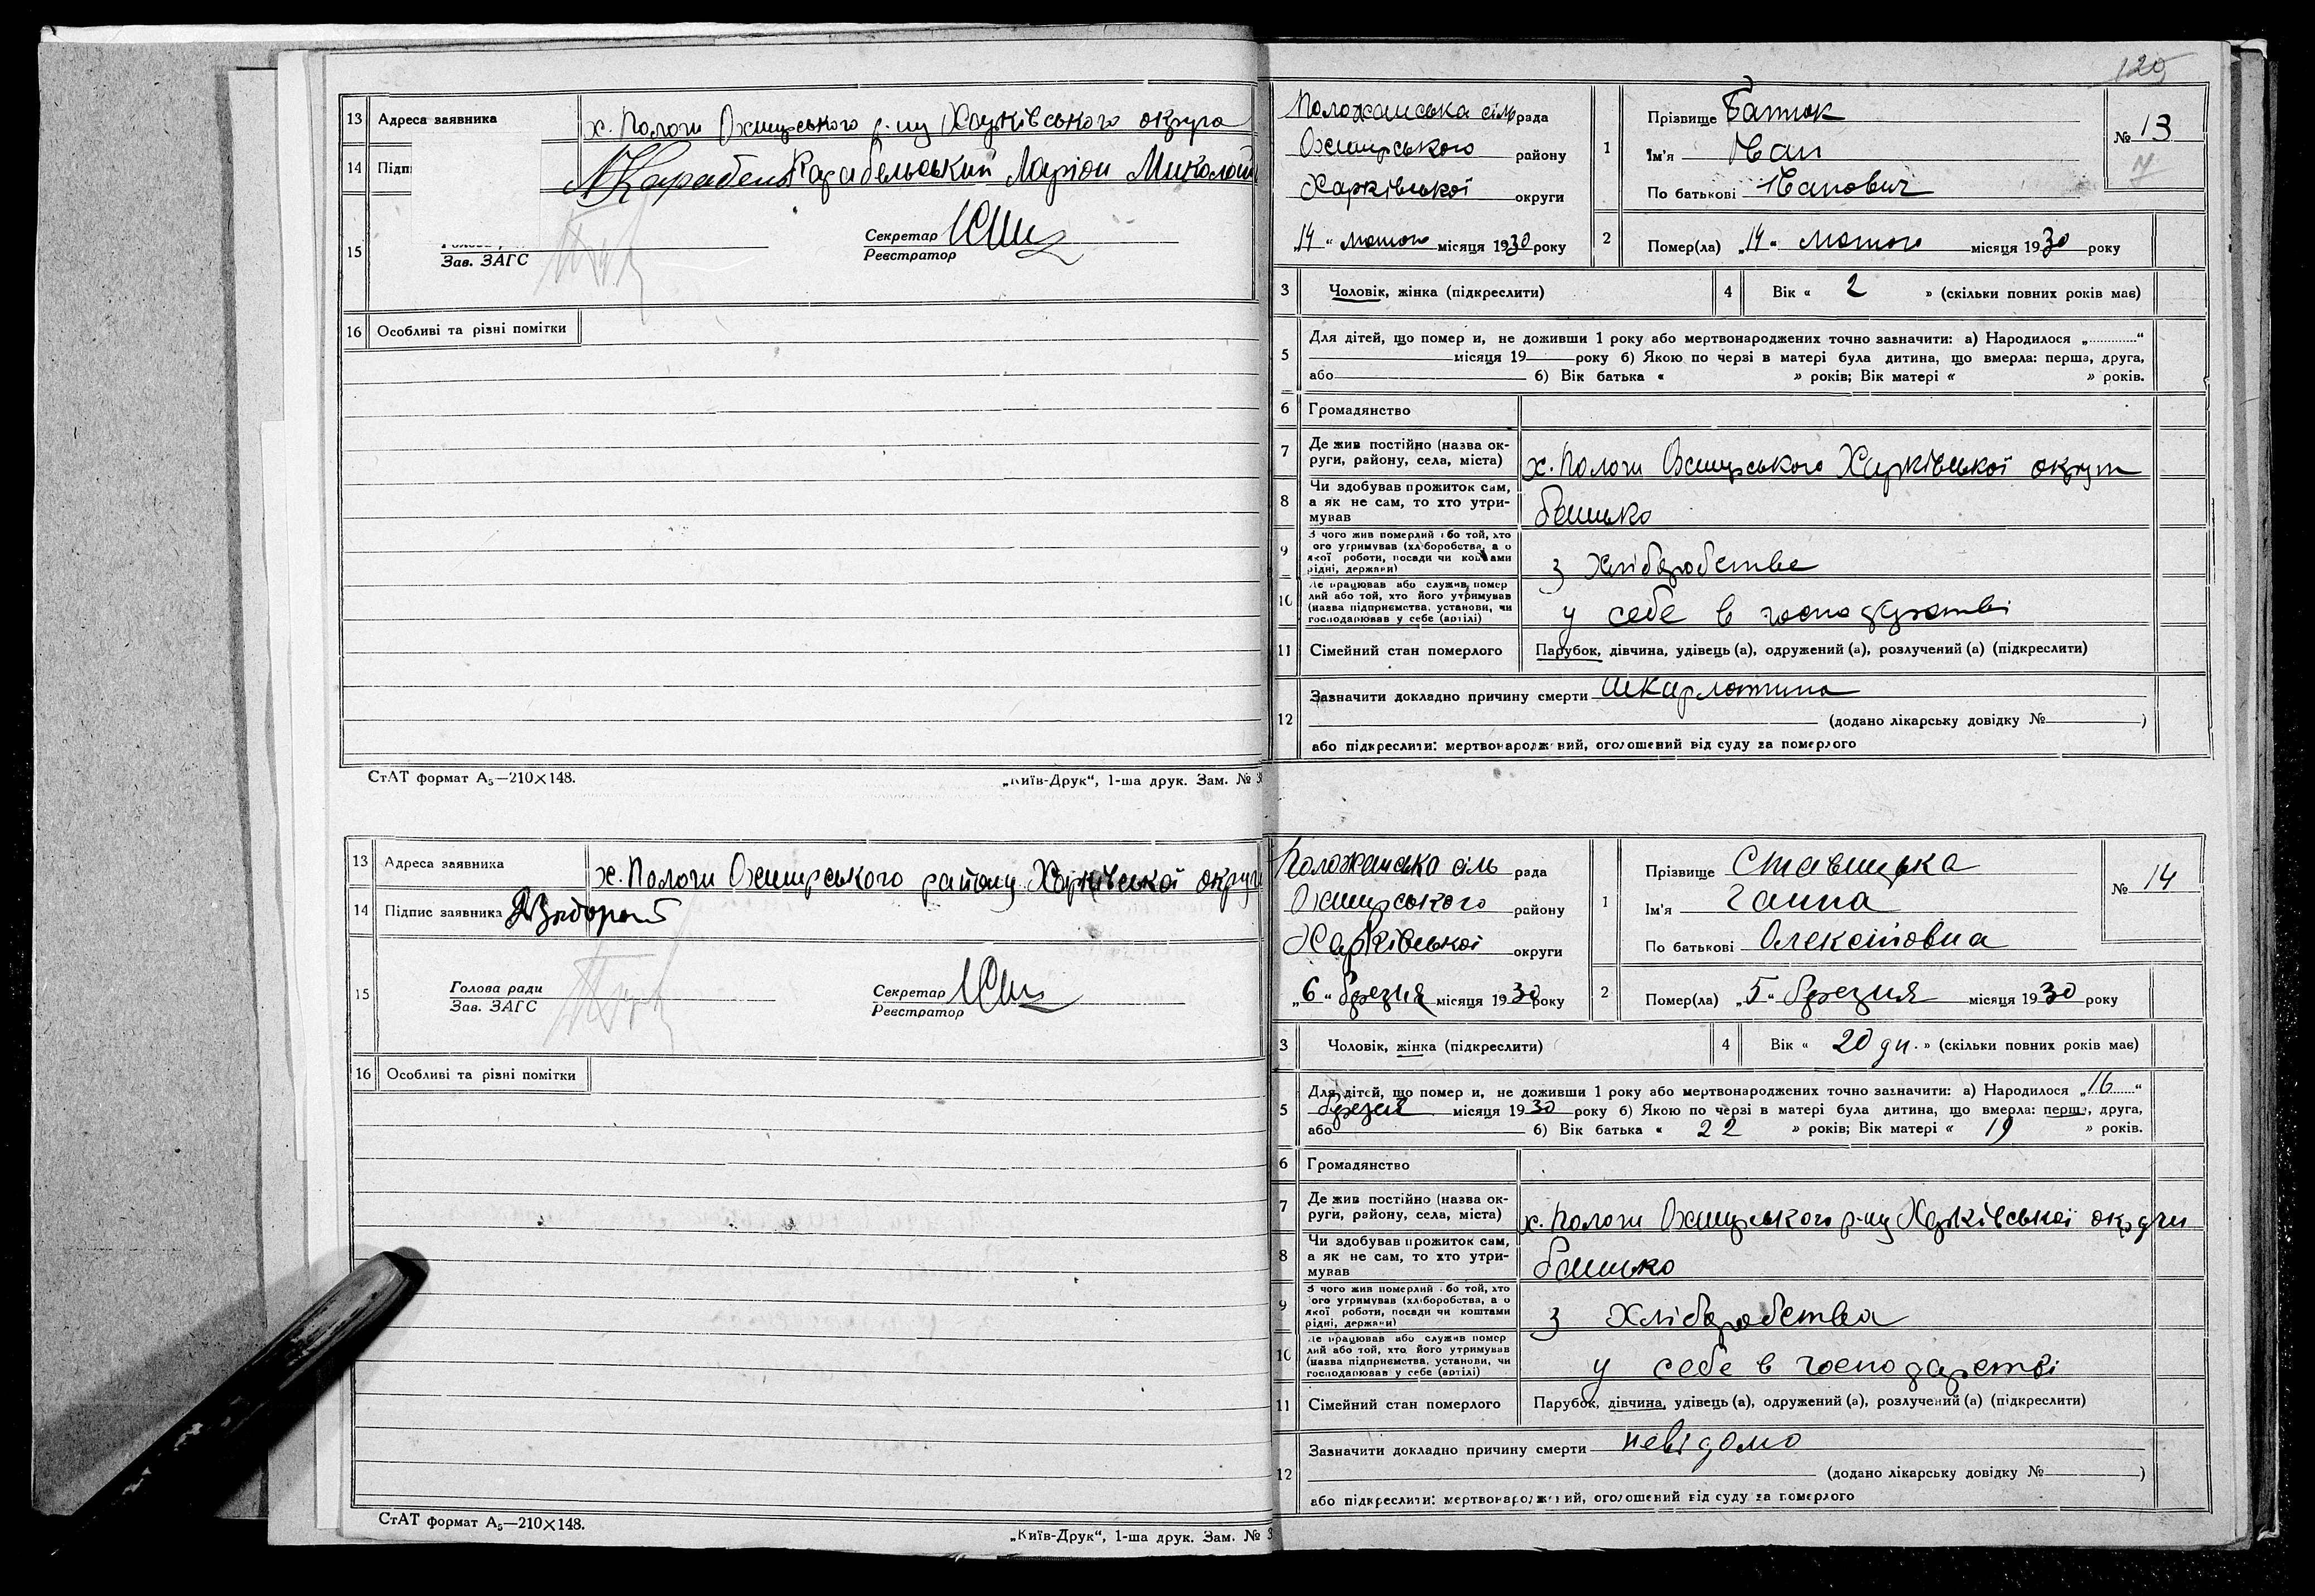 13 Адреса заявника х. Пологи Охтирського р-ну Харківського округа
14 Підп Карабельський Маріон Миколай
15
Зав. ЗАГС
Секретар
Реєстратор
16 Особливі та різні помітки
СтАТ формат А₅—210×148. „Київ-Друк“, 1-ша друк. Зам. № 3
13 Адреса заявника х. Пологи Охтирського району Харківської округи
14 Підпис заявника
15 Голова ради
Зав. ЗАГС
Секретар
Реєстратор
16 Особливі та різні помітки
СтАТ формат А₅—210×148. „Київ-Друк“, 1-ша друк. Зам. № 3
120
Положанська сіль рада
Охтирського району
Харківської округи
„14“ лютого місяця 1930 року
1 Прізвище Батюк
Ім'я Іван
По батькові Іванович
№ 13
7
2 Помер(ла) „14“ лютого місяця 1930 року
3 Чоловік, жінка (підкреслити) 4 Вік « 2 » (скільки повних років має)
5 Для дітей, що помер и, не доживши 1 року або мертвонароджених точно зазначити: а) Народилося „............“
місяця 19 року б) Якою по черзі в матері була дитина, що вмерла: перша, друга,
або 6) Вік батька « » років; Вік матері « » років.
6 Громадянство
7 Де жив постійно (назва ок-
руги, району, села, міста) х. Пологи Охтирського Харківської округи
8 Чи здобував прожиток сам,
а як не сам, то хто утри-
мував батько
9 З чого жив померлий або той, хто
ого утримував (хліборобства, а о
якої роботи, посади чи коштами
рідні, держави) з хліборобства
10 Де працював або служив помер
лий або той, хто його утримував
(назва підприємства, установи, чи
господарював у себе (артілі) у себе в господарстві
11 Сімейний стан померлого Парубок, дівчина, удівець (а), одружений (а), розлучений (а) (підкреслити)
12 Зазначити докладно причину смерти шкарлатина
(додано лікарську довідку № )
або підкреслити: мертвонароджений, оголошений від суду за померлого
Положанська сіль рада
Охтирського району
Харківської округи
„6“ березня місяця 1930 року
1 Прізвище Ставицька
Ім'я Ганна
По батькові Олексіївна
№ 14
2 Помер(ла) „5“ березня місяця 1930 року
3 Чоловік, жінка (підкреслити) 4 Вік « 20 дн. » (скільки повних років має)
5 Для дітей, що помер и, не доживши 1 року або мертвонароджених точно зазначити: а) Народилося „16“
березня місяця 1930 року б) Якою по черзі в матері була дитина, що вмерла: перша, друга,
або 6) Вік батька « 22 » років; Вік матері « 19 » років.
6 Громадянство
7 Де жив постійно (назва ок-
руги, району, села, міста) х. Пологи Охтирського р-ну Харківської округи
8 Чи здобував прожиток сам,
а як не сам, то хто утри-
мував батько
9 З чого жив померлий або той, хто
ого утримував (хліборобства, а о
якої роботи, посади чи коштами
рідні, держави) з хліборобства
10 Де працював або служив помер
лий або той, хто його утримував
(назва підприємства, установи, чи
господарював у себе (артілі) у себе в господарстві
11 Сімейний стан померлого Парубок, дівчина, удівець (а), одружений (а), розлучений (а) (підкреслити)
12 Зазначити докладно причину смерти невідомо
(додано лікарську довідку № )
або підкреслити: мертвонароджений, оголошений від суду за померлого